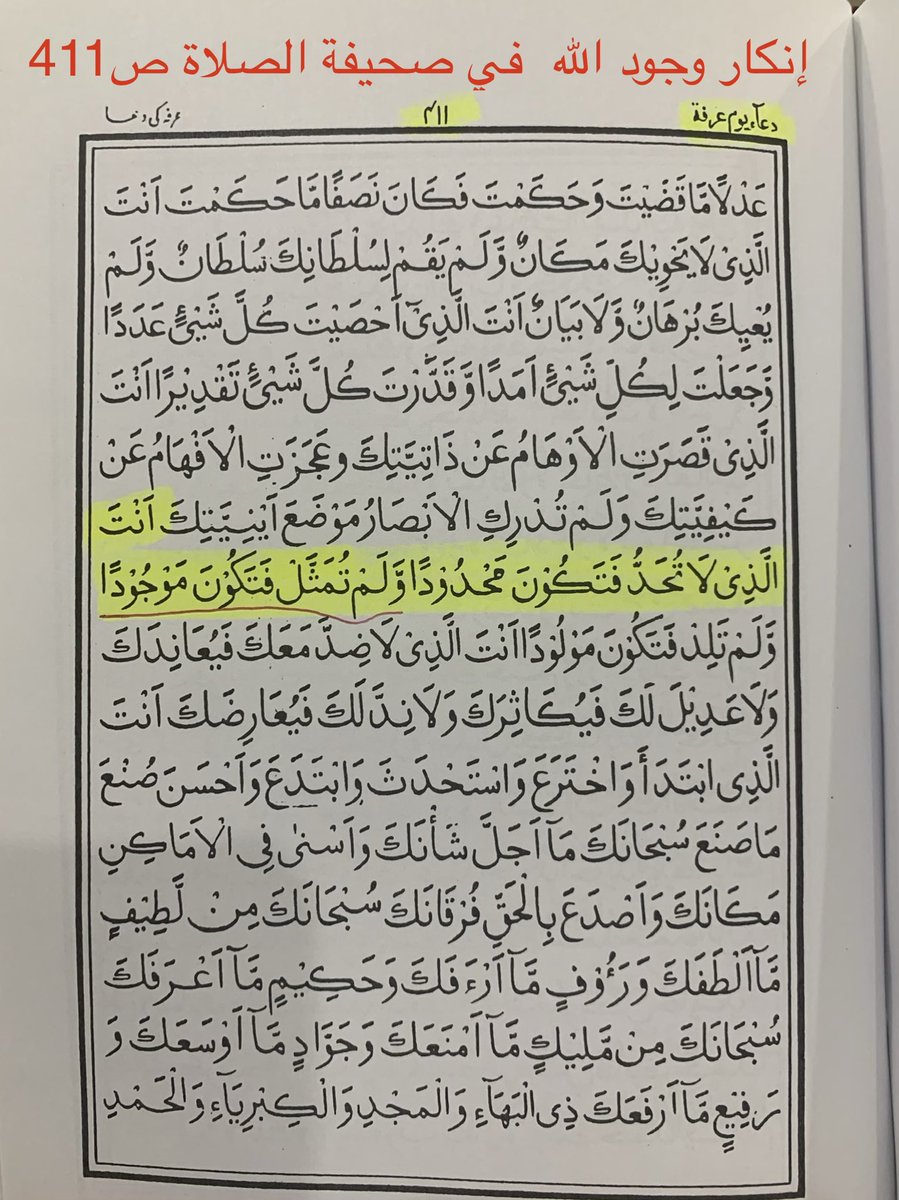 إنكار وجود الله في صحيفة الصلاة ص411
دعآء يوم عرفة ۴۱۱ عرفہ کی دعا
عَدْلًا مَّا قَضَيْتَ وَحَكَمْتَ فَكَانَ نَصَفًا مَّا حَكَمْتَ اَنْتَ
الَّذِىْ لَا يَحْوِيْكَ مَكَانٌ وَّلَمْ يَقُمْ لِسُلْطَانِكَ سُلْطَانٌ وَّلَمْ
يُعْيِكَ بُرْهَانٌ وَّلَا بَيَانٌ اَنْتَ الَّذِىْٓ اَحْصَيْتَ كُلَّ شَيْئٍ عَدَدًا
وَّجَعَلْتَ لِكُلِّ شَيْئٍ اَمَدًا وَّقَدَّرْتَ كُلَّ شَيْئٍ تَقْدِيْرًا اَنْتَ
الَّذِىْ قَصَرَتِ الْاَوْهَامُ عَنْ ذَاتِيَّتِكَ وعَجَزَتِ الْاَفْهَامُ عَنْ
كَيْفِيَّتِكَ وَلَمْ تُدْرِكِ الْاَبْصَارُ مَوْضَعَ اَيْنِيَّتِكَ اَنْتَ
الَّذِىْ لَا تُحَدُّ فَتَكُوْنَ مَحْدُوْدًا وَّلَمْ تُمَثَّلْ فَتَكُوْنَ مَوْجُوْدًا
وَّلَمْ تَلِدْ فَتَكُوْنَ مَوْلُوْدًا اَنْتَ الَّذِىْ لَا ضِدَّ مَعَكَ فَيُعَانِدَكَ
وَلَا عَدِيْلَ لَكَ فَيُكَاثِرَكَ وَلَا نِدَّ لَكَ فَيُعَارِضَكَ اَنْتَ
الَّذِى ابْتَدَأَ وَاخْتَرَعَ وَاسْتَحْدَثَ وَابْتَدَعَ وَاَحْسَنَ صُنْعَ
مَا صَنَعَ سُبْحَانَكَ مَآ اَجَلَّ شَأْنَكَ وَاَسْنٰى فِى الْاَمَاكِنِ
مَكَانَكَ وَاَصْدَعَ بِالْحَقِّ فُرْقَانَكَ سُبْحَانَكَ مِنْ لَّطِيْفٍ
مَّآ اَلْطَفَكَ وَرَؤُوْفٍ مَّآ اَرْءَفَكَ وَحَكِيْمٍ مَّآ اَعْرَفَكَ
سُبْحَانَكَ مِنْ مَّلِيْكٍ مَّآ اَمْنَعَكَ وَجَوَّادٍ مَّآ اَوْسَعَكَ وَ
رَفِيْعٍ مَّآ اَرْفَعَكَ ذِى الْبَهَآءِ وَالْمَجْدِ وَالْكِبْرِيَآءِ وَالْحَمْدِ